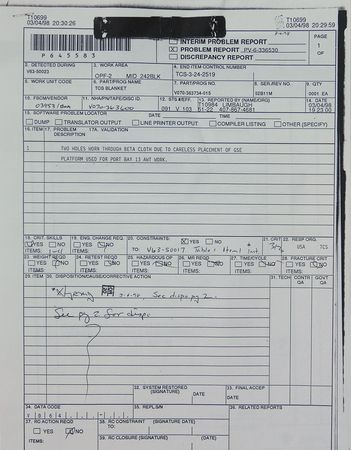 T10699
03/04/98 20:30:26
T10699
03/04/98 20:29:59
P 6 4 5 5 8 3
INTERIM PROBLEM REPORT
X PROBLEM REPORT PV-6-336530
DISCREPANCY REPORT
PAGE
1
OF
2. DETECTED DURING
V83-50023
3. WORK AREA
OPF-2 MID 242BLK
4. END ITEM CONTROL NUMBER
TCS-3-24-2519
5. WORK UNIT CODE
6. PART/PROG NAME
TCS BLANKET
7. PART/PROG NO.
V070-363734-015
8. SER/REV NO.
02B11M
9. QTY
0001 EA
10. FSCM/VENDOR
03953/
11. NHA/PNP/TAPE/DISC ID.
V070-363600
12. STS #/EFF.
091 V 103
13. REPORTED BY (NAME/ORG)
T10984 LIMBAUGH
51-22 407-867-4681
14. DATE
03/04/98
19 23.00
15. SOFTWARE PROBLEM LOCATOR
DUMP TRANSLATOR OUTPUT LINE PRINTER OUTPUT COMPILER LISTING OTHER (SPECIFY)
16. ITEM 17. PROBLEM DESCRIPTION 17A. VALIDATION
1 TWO HOLES WORN THROUGH BETA CLOTH DUE TO CARELESS PLACEMENT OF GSE
PLATFORM USED FOR PORT BAY 13 AWT WORK.
18. CRIT. SKILLS
YES NO
ITEMS: 1-4
19. ENG. CHANGE REQ.
YES NO
ITEMS:
20. CONSTRAINTS: X YES NO
TO: V63-50017 Table 1 Item 1
21. CRIT
22. RESP. ORG.
USA TCS
23. WEIGHT REQD
YES NO
ITEMS:
24. RETEST REQD
YES NO
ITEMS:
25. HAZARDOUS OP
YES NO
ITEMS:
26. MR REQD
YES NO
ITEMS:
27. TIME/CYCLE
YES NO
ITEMS:
28. FRACTURE CRIT
YES NO
ITEMS:
29. ITEM 30. DISPOSITION/CAUSE/CORRECTIVE ACTION
31. TECH CONTR QA QA
See dispo. pg 2
See pg 2 for dispo
32. SYSTEM RESTORED
(SIGNATURE) DATE
33. FINAL ACCEP
DATE
34. DATA CODE
V 0 6 4
35. REPL.S/N
36. RELATED REPORTS
37. RO ACTION REQD
YES NO
ITEMS:
38. RC CONSTRAINT (SIGNATURE) (DATE)
TO:
39. RC CLOSURE (SIGNATURE) (DATE)